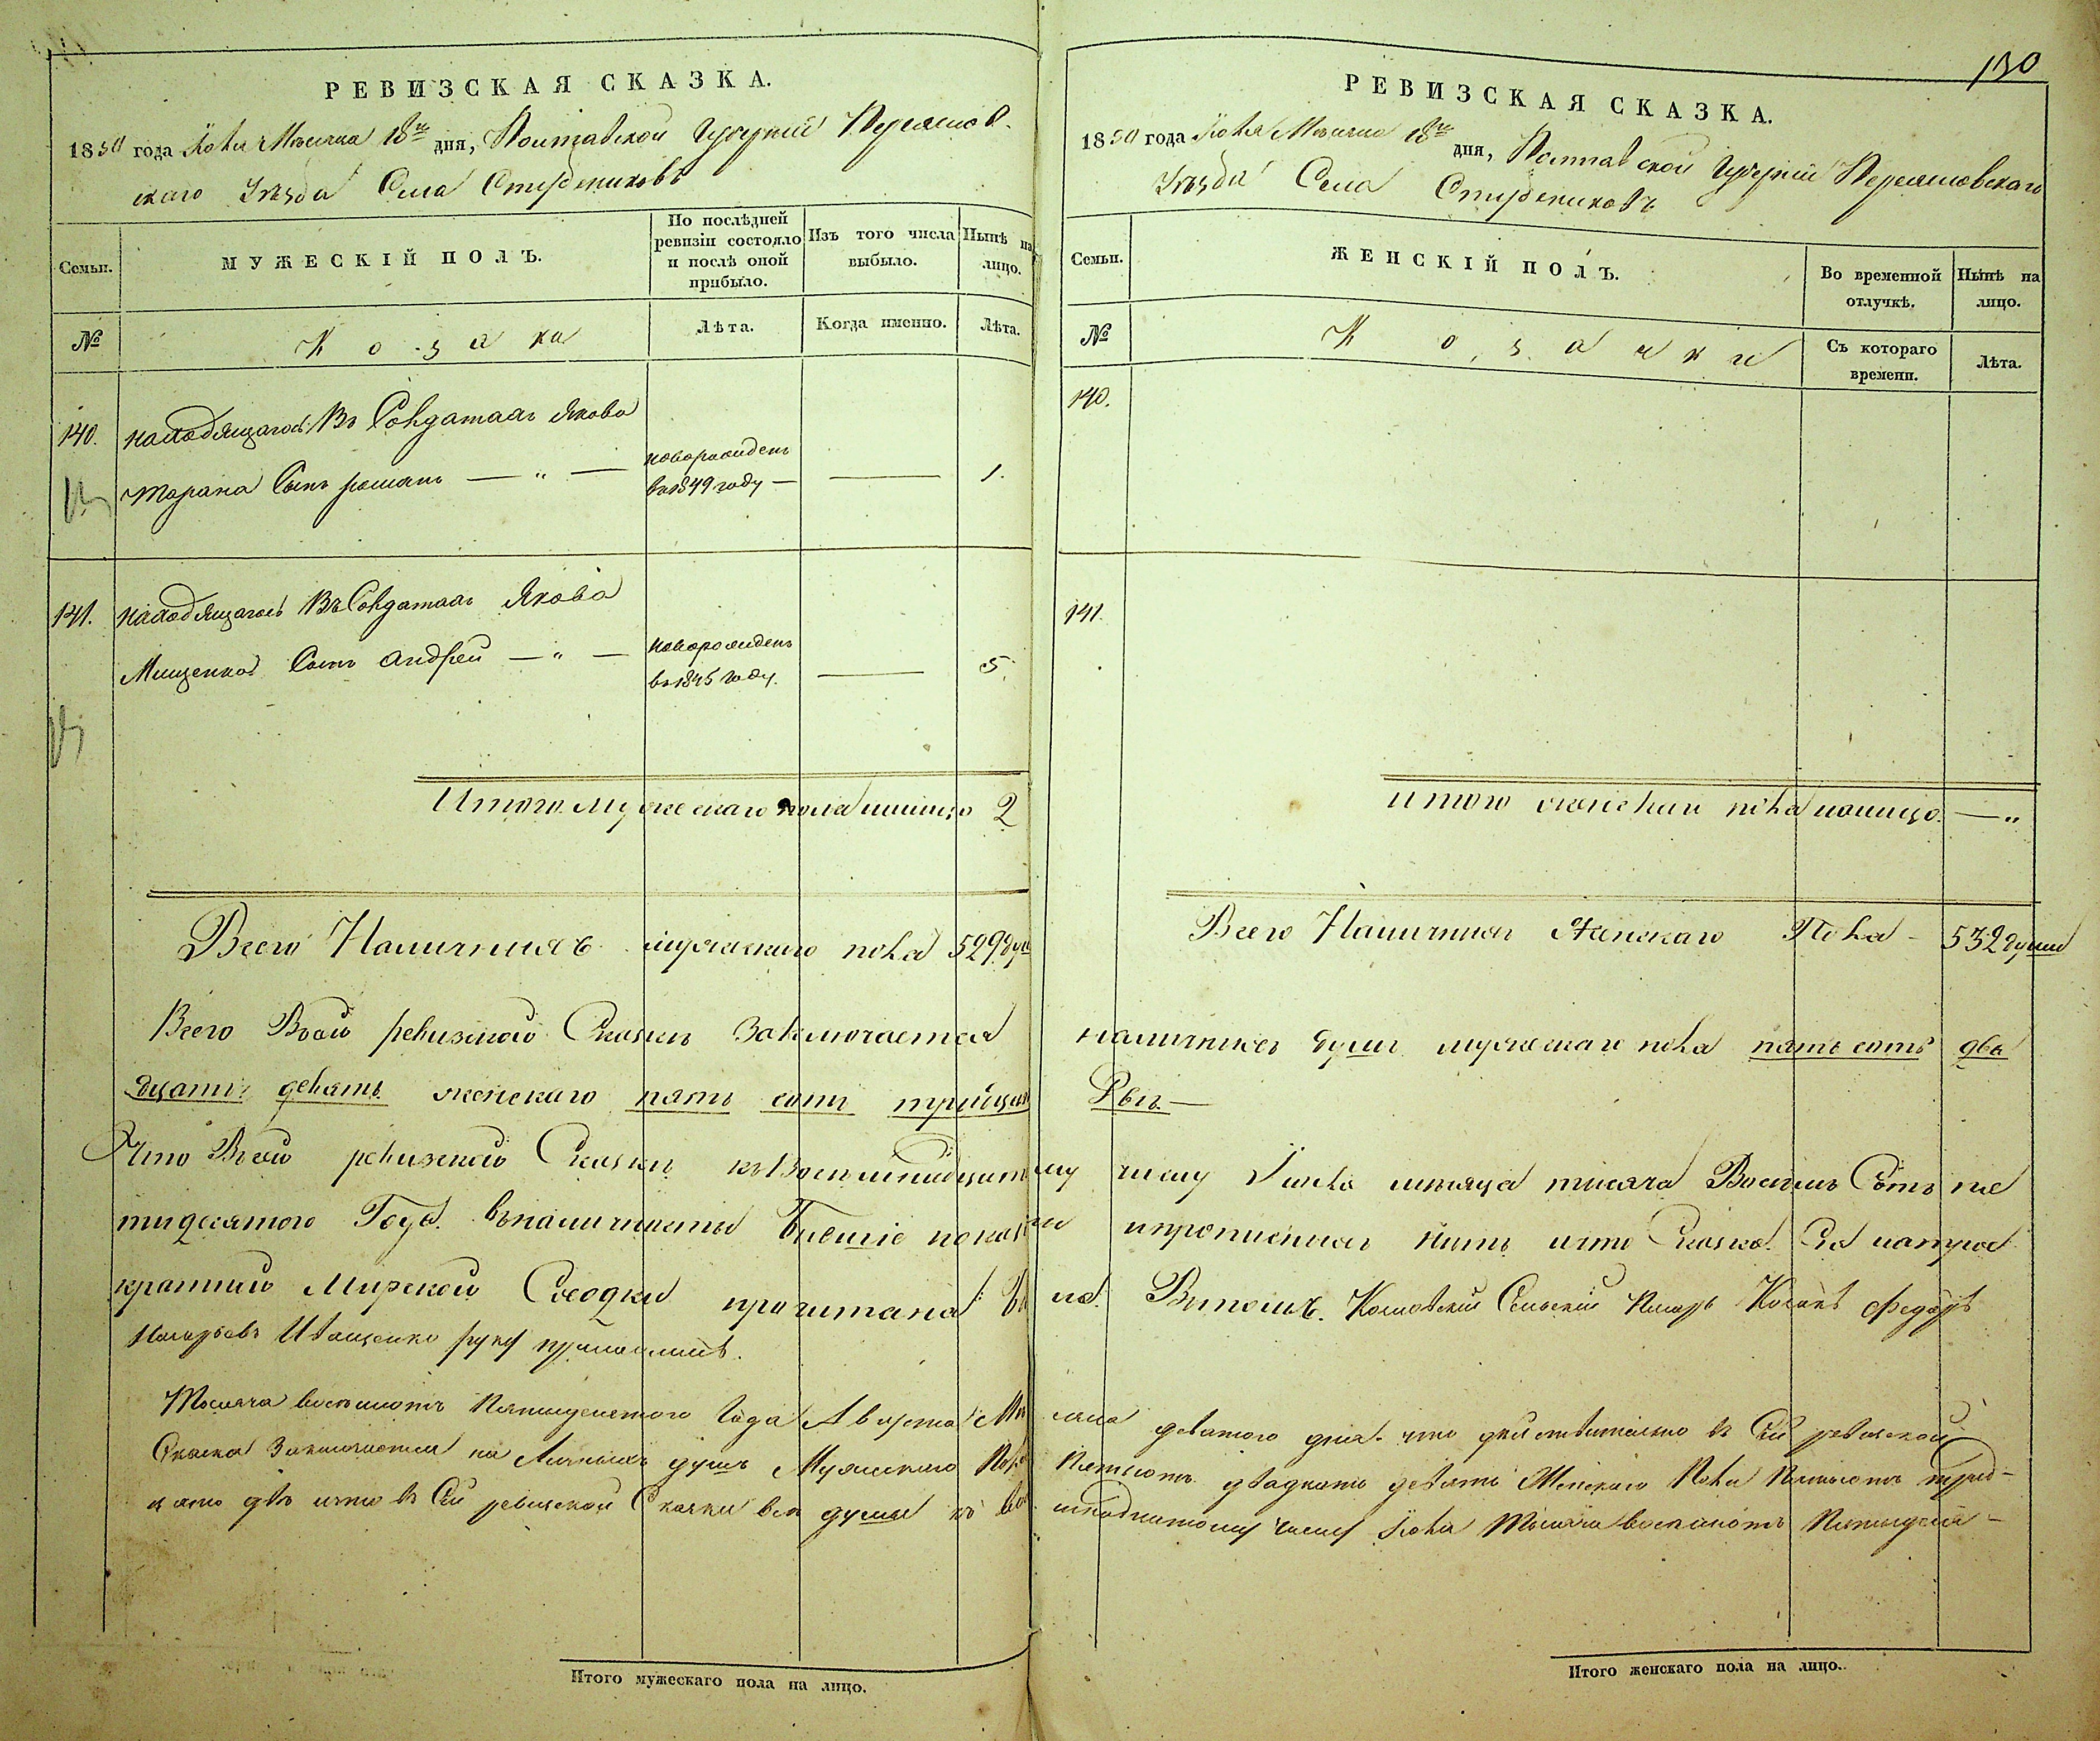 130
РЕВИЗСКАЯ СКАЗКА.
1850 года Іюля Мѣсяца 18го дня, Полтавской Губерніи Переяслов-
скаго Уѣзда Села Студениковъ
Семьи. МУЖЕСКІЙ ПОЛЪ. По послѣдней ревизіи состояло и послѣ оной прибыло. Изъ того числа выбыло. Нынѣ на лицо.
№ Козаки Лѣта. Когда именно. Лѣта.
140. находящагось Въ Солдатахъ Якова
Тарана Сынъ романъ — „ — новорожденъ въ 1849 году — — 1.
141. находящагось Въ Солдатахъ Якова
Мищенка Сынъ андрей — „ — новорожденъ въ 1845 году. — 5.
Итого мужескаго пола налицо 2
Всего Наличныхъ мужескаго пола 529 душ
РЕВИЗСКАЯ СКАЗКА.
1850 года Іюля Мѣсяца 18го дня, Полтавской Губерніи Переясловскаго
Уѣзда Села Студениковъ
Семьи. ЖЕНСКІЙ ПОЛЪ. Во временной отлучкѣ. Нынѣ на лицо.
№ Козачки Съ котораго времени. Лѣта.
140.
141.
итого женскаго пола налицо — „
Всего Наличныхъ Женскаго Пола — 532 души
Всего Въ сей ревизской Сказкѣ Заключается наличныхъ душъ мужескаго пола пять сотъ два
дцать девять женскаго пять сотъ тридцать Двѣ. —
Что Въ сей ревизской Сказкѣ къ Восемнадцатому числу Іюля мѣсяца тысяча Восемь Сотъ пя
тидесятого Года въ наличности Бывшіе показаны и прописанныхъ нѣтъ и что Сказка Сія на
кратній Мирской Сходки прочитана была. Въ томъ Сельскій Писарь Козакъ Федоръ
Иващенко руку приложилъ.
Тысяча восемьсотъ Пятидесятого Года Августа Мѣсяца девятого дня что дѣйствительно въ Сей ревизской
Сказкѣ Заключается на Личныхъ душъ Мужескаго Пола Пятьсотъ двадцать девять Женскаго Пола Пятьсотъ трид-
цать двѣ и что въ Сей ревизской Сказки всѣ души къ восемнадцатому числу Іюля Тысяча восемьсотъ Пятидеся-
Итого мужескаго пола на лицо.
Итого женскаго пола на лицо.